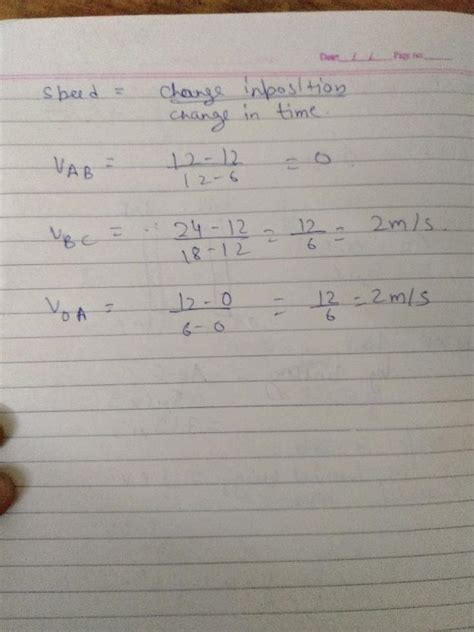 Date: / / Page no:
Speed = change inposition
change in time.
V_AB = 12-12 / 12-6 = 0
V_BC = 24-12 / 18-12 = 12/6 = 2m/s.
V_OA = 12-0 / 6-0 = 12/6 = 2m/s